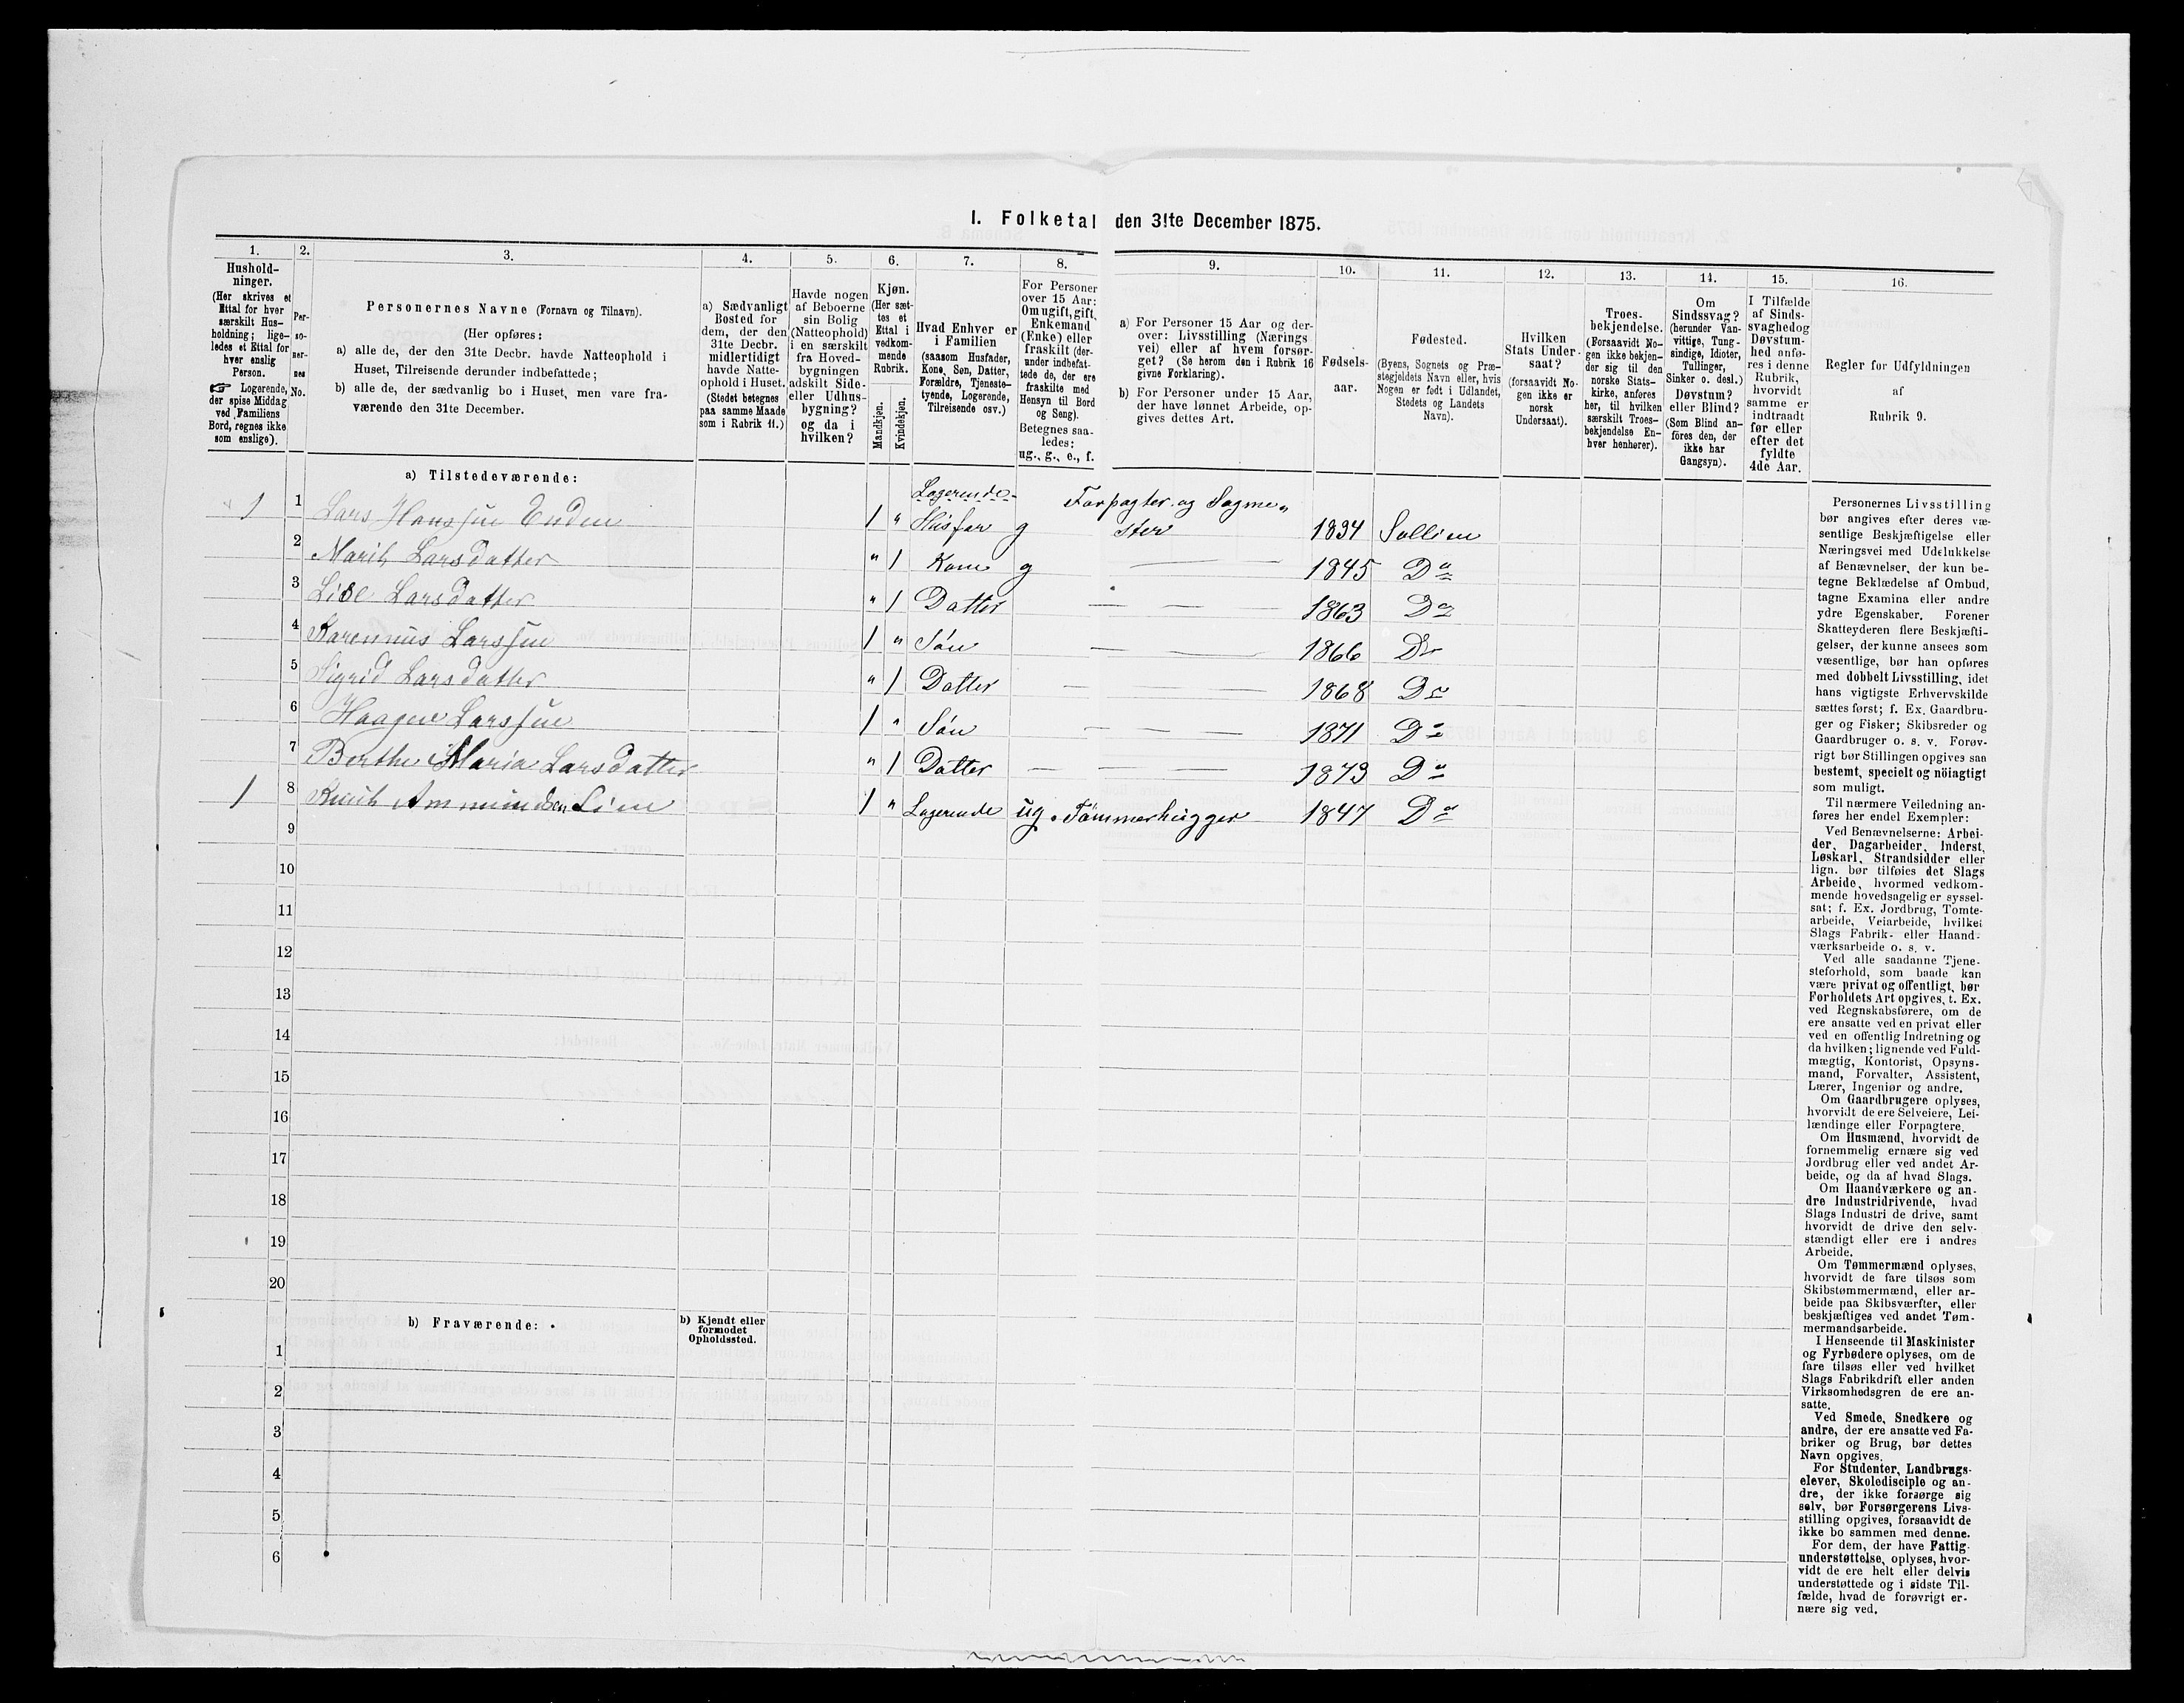 I. Folketal den 31te December 1875.
1.
Hushold-
ninger.
(Her skrives et
Ettal for hver
særskilt Hus-
holdning; lige-
ledes et Ettal for
hver enslig
Person.
☞ Logerende,
der spise Middag
ved Familiens
Bord, regnes ikke
som enslige).
2.
Per-
so-
ner-
nes
No.
3.
Personernes Navne (Fornavn og Tilnavn).
(Her opføres:
a) alle de, der den 31te Decbr. havde Natteophold i
Huset, Tilreisende derunder indbefattede;
b) alle de, der sædvanlig bo i Huset, men vare fra-
værende den 31te December.
4.
a) Sædvanligt
Bosted for
dem, der den
31te Decbr.
midlertidigt
havde Natte-
ophold i Huset.
(Stedet betegnes
paa samme Maade
som i Rubrik 11.)
5.
Havde nogen
af Beboerne
sin Bolig
(Natteophold)
i en særskilt
fra Hoved-
bygningen
adskilt Side-
eller Udhus-
bygning?
og da i
hvilken?
6.
Kjøn.
(Her sæt-
tes et
Ettal i
vedkom-
mende
Rubrik.
Mandkjøn.
Kvindekjøn.
7.
Hvad Enhver er
i Familien
(saasom Husfader,
Kone, Søn, Datter,
Forældre, Tjeneste-
tyende, Logerende,
Tilreisende osv.)
8.
For Personer
over 15 Aar:
Om ugift, gift,
Enkemand
(Enke) eller
fraskilt (der-
under indbefat-
tede de, der ere
fraskilte med
Hensyn til Bord
og Seng).
Betegnes saa-
ledes:
ug., g., e., f.
9.
a) For Personer 15 Aar og der-
over: Livsstilling (Nærings-
vei) eller af hvem forsør-
get? (Se herom den i Rubrik 16
givne Forklaring).
b) For Personer under 15 Aar,
der have lønnet Arbeide, op-
gives dettes Art.
10.
Fødsels-
aar.
11.
Fødested.
(Byens, Sognets og Præ-
stegjeldets Navn eller, hvis
Nogen er født i Udlandet,
Stedets og Landets
Navn).
12.
Hvilken
Stats Under-
saat?
(forsaavidt No-
gen ikke er
norsk
Undersaat).
13.
Troes-
bekjendelse.
(Forsaavidt No-
gen ikke bekjen-
der sig til den
norske Stats-
kirke, anføres
her, til hvilken
særskilt Troes-
bekjendelse En-
hver henhører).
14.
Om
Sindssvag?
(herunder Van-
vittige, Tung-
sindige, Idioter,
Tullinger,
Sinker o. desl.)
Døvstum?
eller Blind?
(Som Blind an-
føres den, der
ikke har
Gangsyn).
15.
I Tilfælde
af Sinds-
svaghedog
Døvstum-
hed anfø-
res i denne
Rubrik,
hvorvidt
samme er
indtraadt
før eller
efter det
fyldte
4de Aar.
16.
Regler for Udfyldningen
af
Rubrik 9.
a) Tilstedeværende:
1 1 Lars Hanssen Enden 1 " Logerende Husfar g Forpagter og Sagme" ster 1834 Sollien
2 Marit Larsdatter " 1 Kone g — 1845 Do
3 Lise Larsdatter " 1 Datter — — — 1863 Do
4 Karennus Larssen 1 " Søn — — — 1866 Do
5 Sigrid Larsdatter " 1 Datter — — — 1868 Do
6 Haagen Larssen 1 " Søn — — — 1871 Do
7 Berthe Maria Larsdatter " 1 Datter — — — 1873 Do
1 8 Knut Ammundsen Lien 1 " Logerende ug. Tømmerhugger 1847 Do
9
10
11
12
13
14
15
16
17
18
19
20
b) Fraværende:
b) Kjendt eller
formodet
Opholdssted.
1
2
3
4
5
6
Personernes Livsstilling
bør angives efter deres væ-
sentlige Beskjæftigelse eller
Næringsvei med Udelukkelse
af Benævnelser, der kun be-
tegne Beklædelse af Ombud,
tagne Examina eller andre
ydre Egenskaber. Forener
Skatteyderen flere Beskjæfti-
gelser, der kunne ansees som
væsentlige, bør han opføres
med dobbelt Livsstilling, idet
hans vigtigste Erhvervskilde
sættes først; f. Ex. Gaardbru-
ger og Fisker; Skibsreder og
Gaardbruger o. s. v. Forøv-
rigt bør Stillingen opgives saa
bestemt, specielt og nöiagtigt
som muligt.
Til nærmere Veiledning an-
føres her endel Exempler:
Ved Benævnelserne: Arbei-
der, Dagarbeider, Inderst,
Løskarl, Strandsidder eller
lign. bør tilføies det Slags
Arbeide, hvormed vedkom-
mende hovedsagelig er syssel-
sat; f. Ex. Jordbrug, Tomte-
arbeide, Veiarbeide, hvilket
Slags Fabrik- eller Haand-
værksarbeide o. s. v.
Ved alle saadanne Tjene-
steforhold, som baade kan
være privat og offentligt, bør
Forholdets Art opgives, t. Ex.
ved Regnskabsførere, om de
ere ansatte ved en privat eller
ved en offentlig Indretning og
da hvilken; lignende ved Fuld-
mægtig, Kontorist, Opsyns-
mand, Forvalter, Assistent,
Lærer, Ingeniør og andre.
Om Gaardbrugere oplyses,
hvorvidt de ere Selveiere, Lei-
lændinge eller Forpagtere.
Om Husmænd, hvorvidt de
fornemmelig ernære sig ved
Jordbrug eller ved andet Ar-
beide, og da af hvad Slags.
Om Haandværkere og an-
dre Industridrivende, hvad
Slags Industri de drive, samt
hvorvidt de drive den selv-
stændigt eller ere i andres
Arbeide.
Om Tømmermænd oplyses,
hvorvidt de fare tilsøs som
Skibstømmermænd, eller ar-
beide paa Skibsværfter, eller
beskjæftiges ved andet Tøm-
mermandsarbeide.
I Henseende til Maskinister
og Fyrbødere oplyses, om de
fare tilsøs eller ved hvilket
Slags Fabrikdrift eller anden
Virksomhedsgren de ere an-
satte.
Ved Smede, Snedkere og
andre, der ere ansatte ved Fa-
briker og Brug, bør dettes
Navn opgives.
For Studenter, Landbrugs-
elever, Skoledisciple og an-
dre, der ikke forsørge sig
selv, bør Forsørgerens Livs-
stilling opgives, forsaavidt de
ikke bo sammen med denne.
For dem, der have Fattig-
understøttelse, oplyses, hvor-
vidt de ere helt eller delvis
understøttede og i sidste Til-
fælde, hvad de forøvrigt er-
nære sig ved.